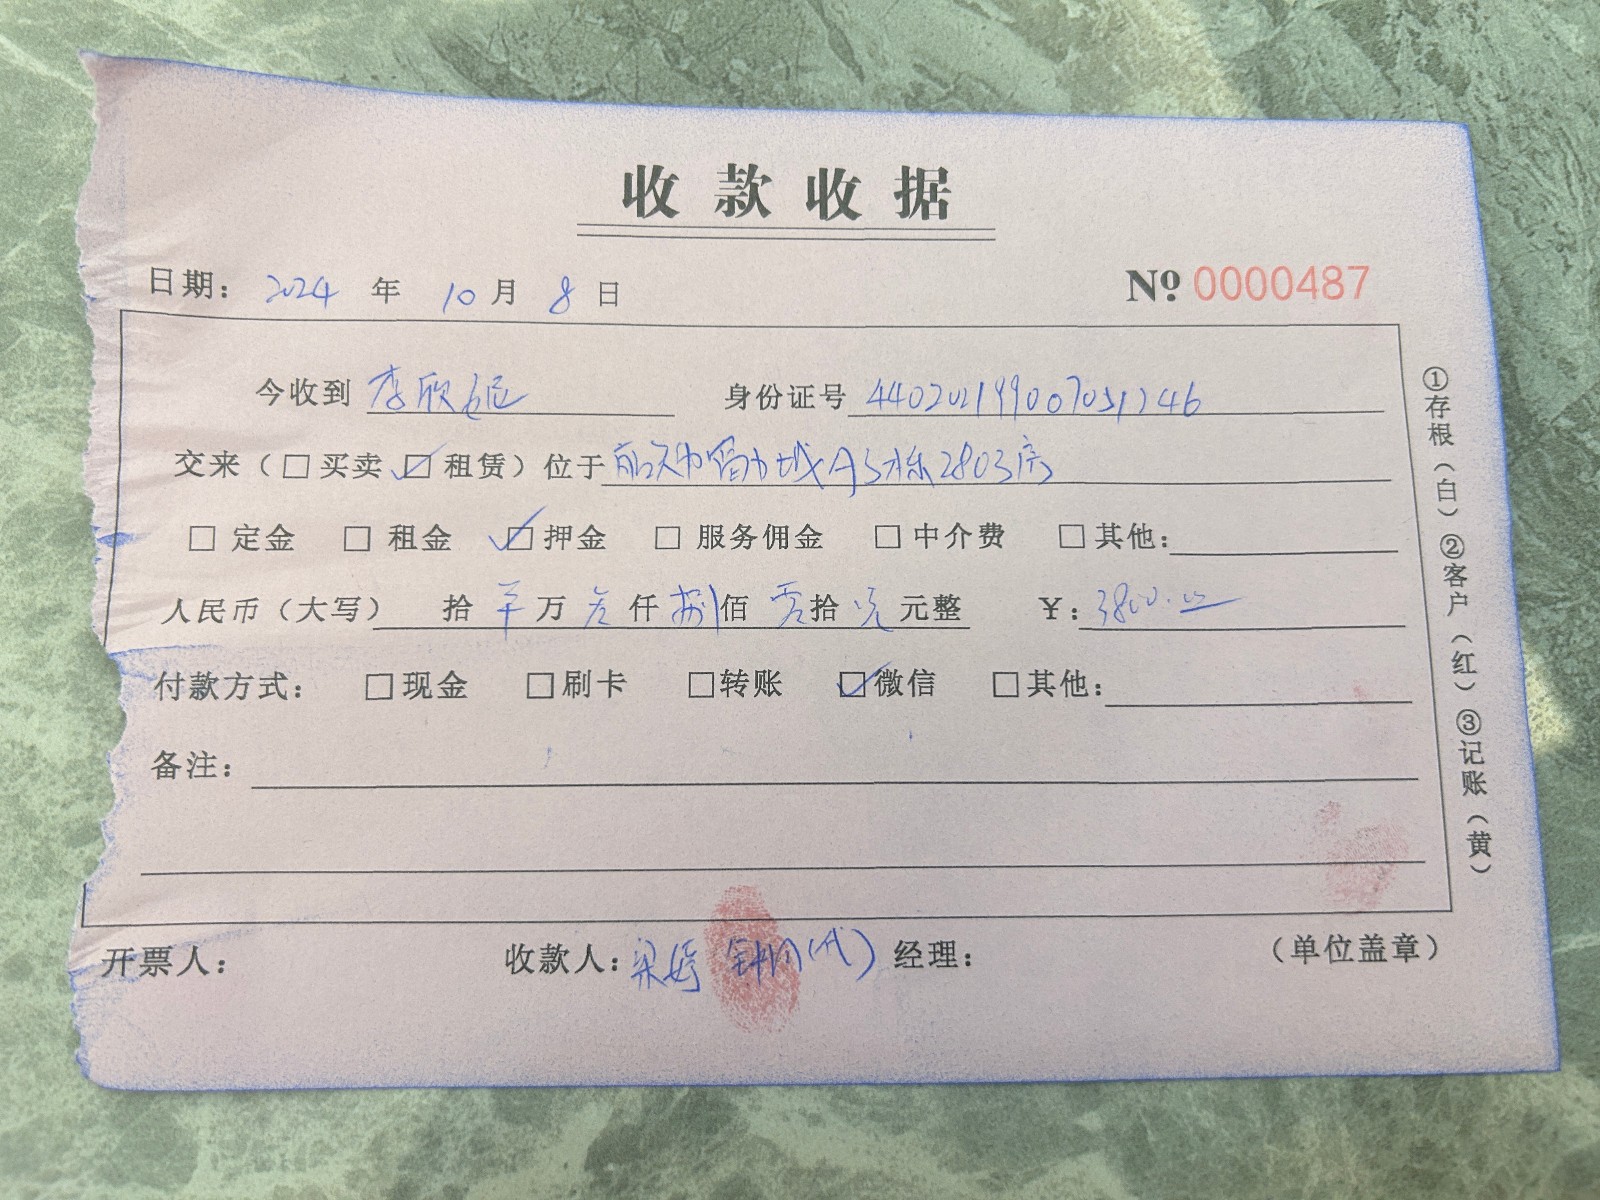 收款收据
日期： 2024 年 10 月 8 日 № 0000487
今收到 李欣 身份证号
交来（□买卖 ☑租赁）位于 城A3栋2803房
□ 定金 □ 租金 ☑ 押金 □ 服务佣金 □ 中介费 □ 其他：
人民币（大写） 拾 万 叁 仟 捌 佰 零 拾 元 元整 ￥：3800.00
付款方式： □现金 □刷卡 □转账 ☑微信 □其他：
备注：
开票人： 收款人：梁婷 (代) 经理： （单位盖章）
①存根（白）②客户（红）③记账（黄）